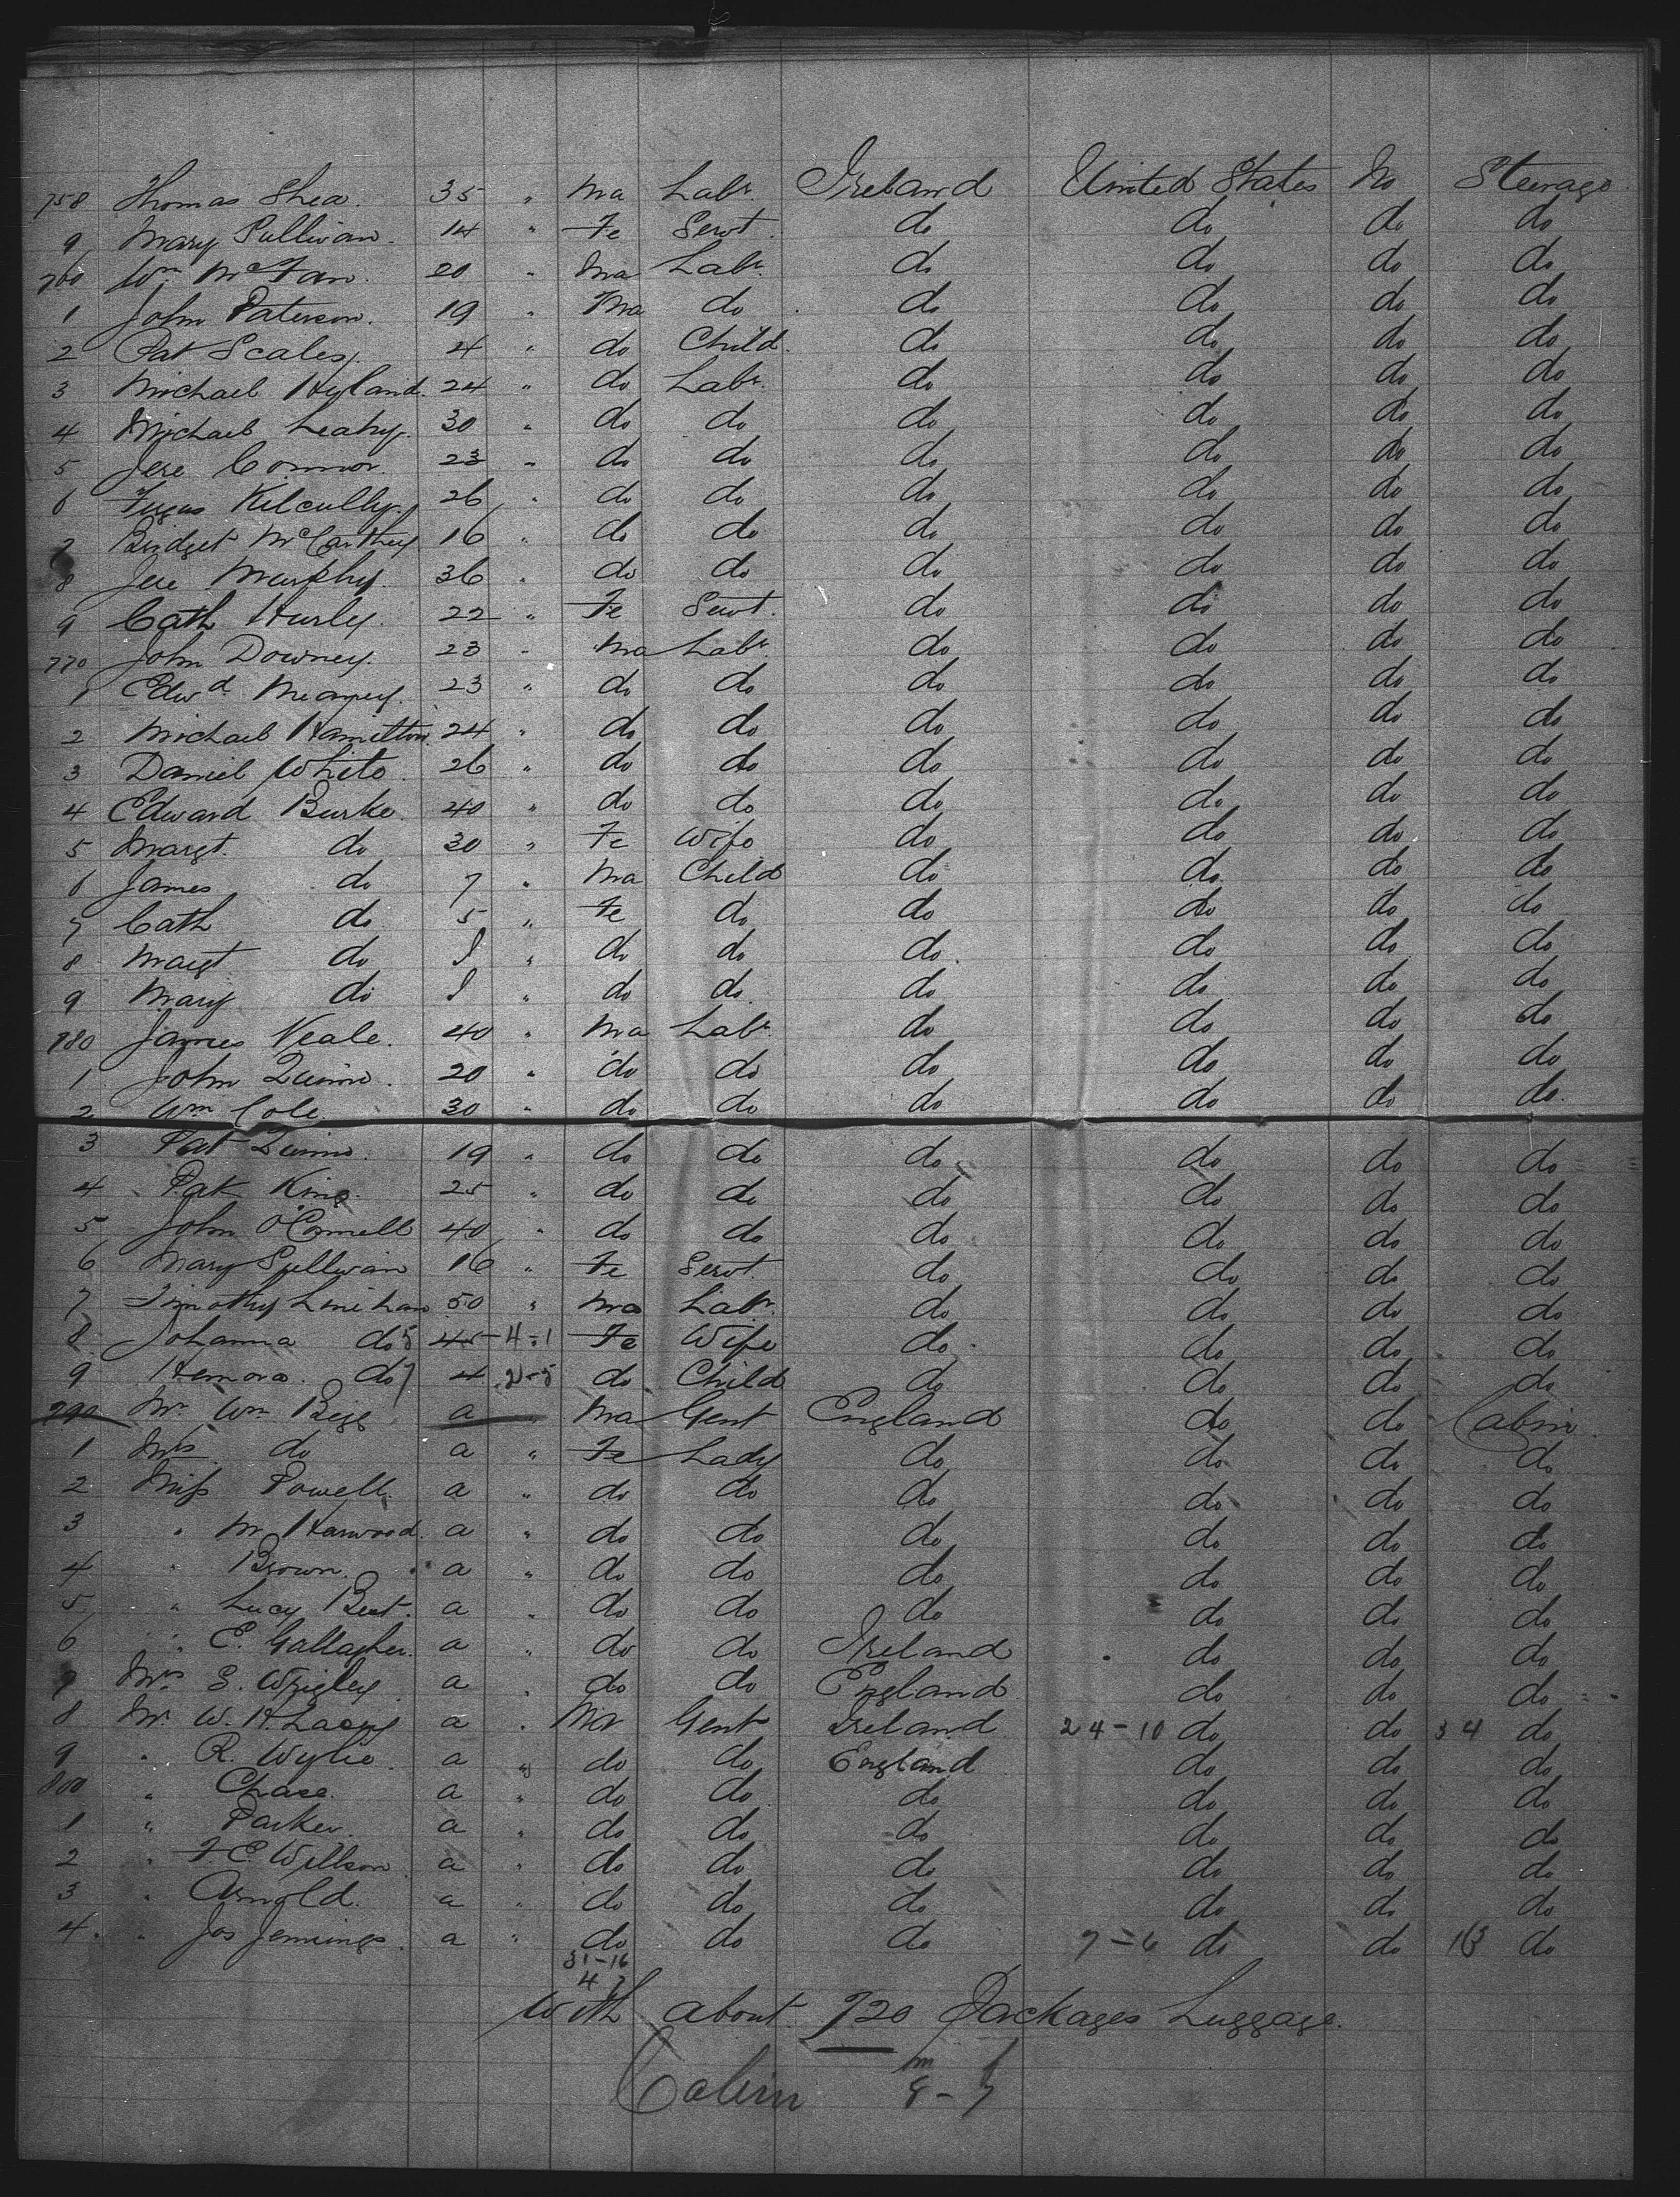 758 Thomas Shea. 35 " Ma Labr. Ireland United States No Steerage
9 Mary Sullivan. 14 " Fe Servt. do do do do
760 Wm McFan. 20 " Ma Labr. do do do do
1 John Paterson. 19 " Ma do do do do do
2 Pat Scales. 4 " do Child. do do do do
3 Michael Hyland. 24 " do Labr. do do do do
4 Michael Leahy. 30 " do do do do do do
5 Jere Connor. 23 " do do do do do do
6 Kilcully. 26 " do do do do do do
7 Bridget McCarthey 16 " do do do do do do
8 Jere Murphy. 36 " do do do do do do
9 Cath Hurley. 22 " Fe Servt. do do do do
770 John Downey. 23 " Ma Labr. do do do do
1 Edwd Meaney. 23 " do do do do do do
2 Michael Hamilton. 24 " do do do do do do
3 Daniel White. 26 " do do do do do do
4 Edward Burke 40 " do do do do do do
5 Margt. do 30 " Fe Wife do do do do
6 James do 7 " Ma Child do do do do
7 Cath do 5 " Fe do do do do do
8 Margt do " do do do do do do
9 Mary do " do do do do do do
780 James Neale. 40 " Ma Labr. do do do do
1 John Quinn. 20 " do do do do do do
2 Wm Cole. 30 " do do do do do do
3 Pat Quinn. 19 " do do do do do do
4 Pat King. 25 " do do do do do do
5 John O'Connell 40 " do do do do do do
6 Mary Sullivan 16 " Fe Servt. do do do do
7 Timothy Linihan 50 " Ma Labr. do do do do
8 Johanna do 5 45 4-1 Fe Wife do do do do
9 Hemora. do 7 4 2-5 do Child do do do do
790 Mr Wm Bigg a " Ma Gent England do do Cabin.
1 Mrs do a " Fe Lady do do do do
2 Miss Powell. a " do do do do do do
3 " M Harwood. a " do do do do do do
4 " Brown. a " do do do do do do
5 " Lucy Best. a " do do do do do do
6 " E. Gallagher. a " do do Ireland do do do
7 Mrs S. Wrigley a " do do England do do do
8 Mr W. H. Lacey a " Ma Gent Ireland 24-10 do do 34 do
9 " R. Wylie. a " do do England do do do
800 " Chase. a " do do do do do do
1 " Parker. a " do do do do do do
2 " F. E. Willson a " do do do do do do
3 " Arnold. a " do do do do do do
4 " Jos Jennings. a " do do do 7-6 do do 13 do
31-16
47
With about 720 Packages Luggage.
Cabin m 8 - f 7